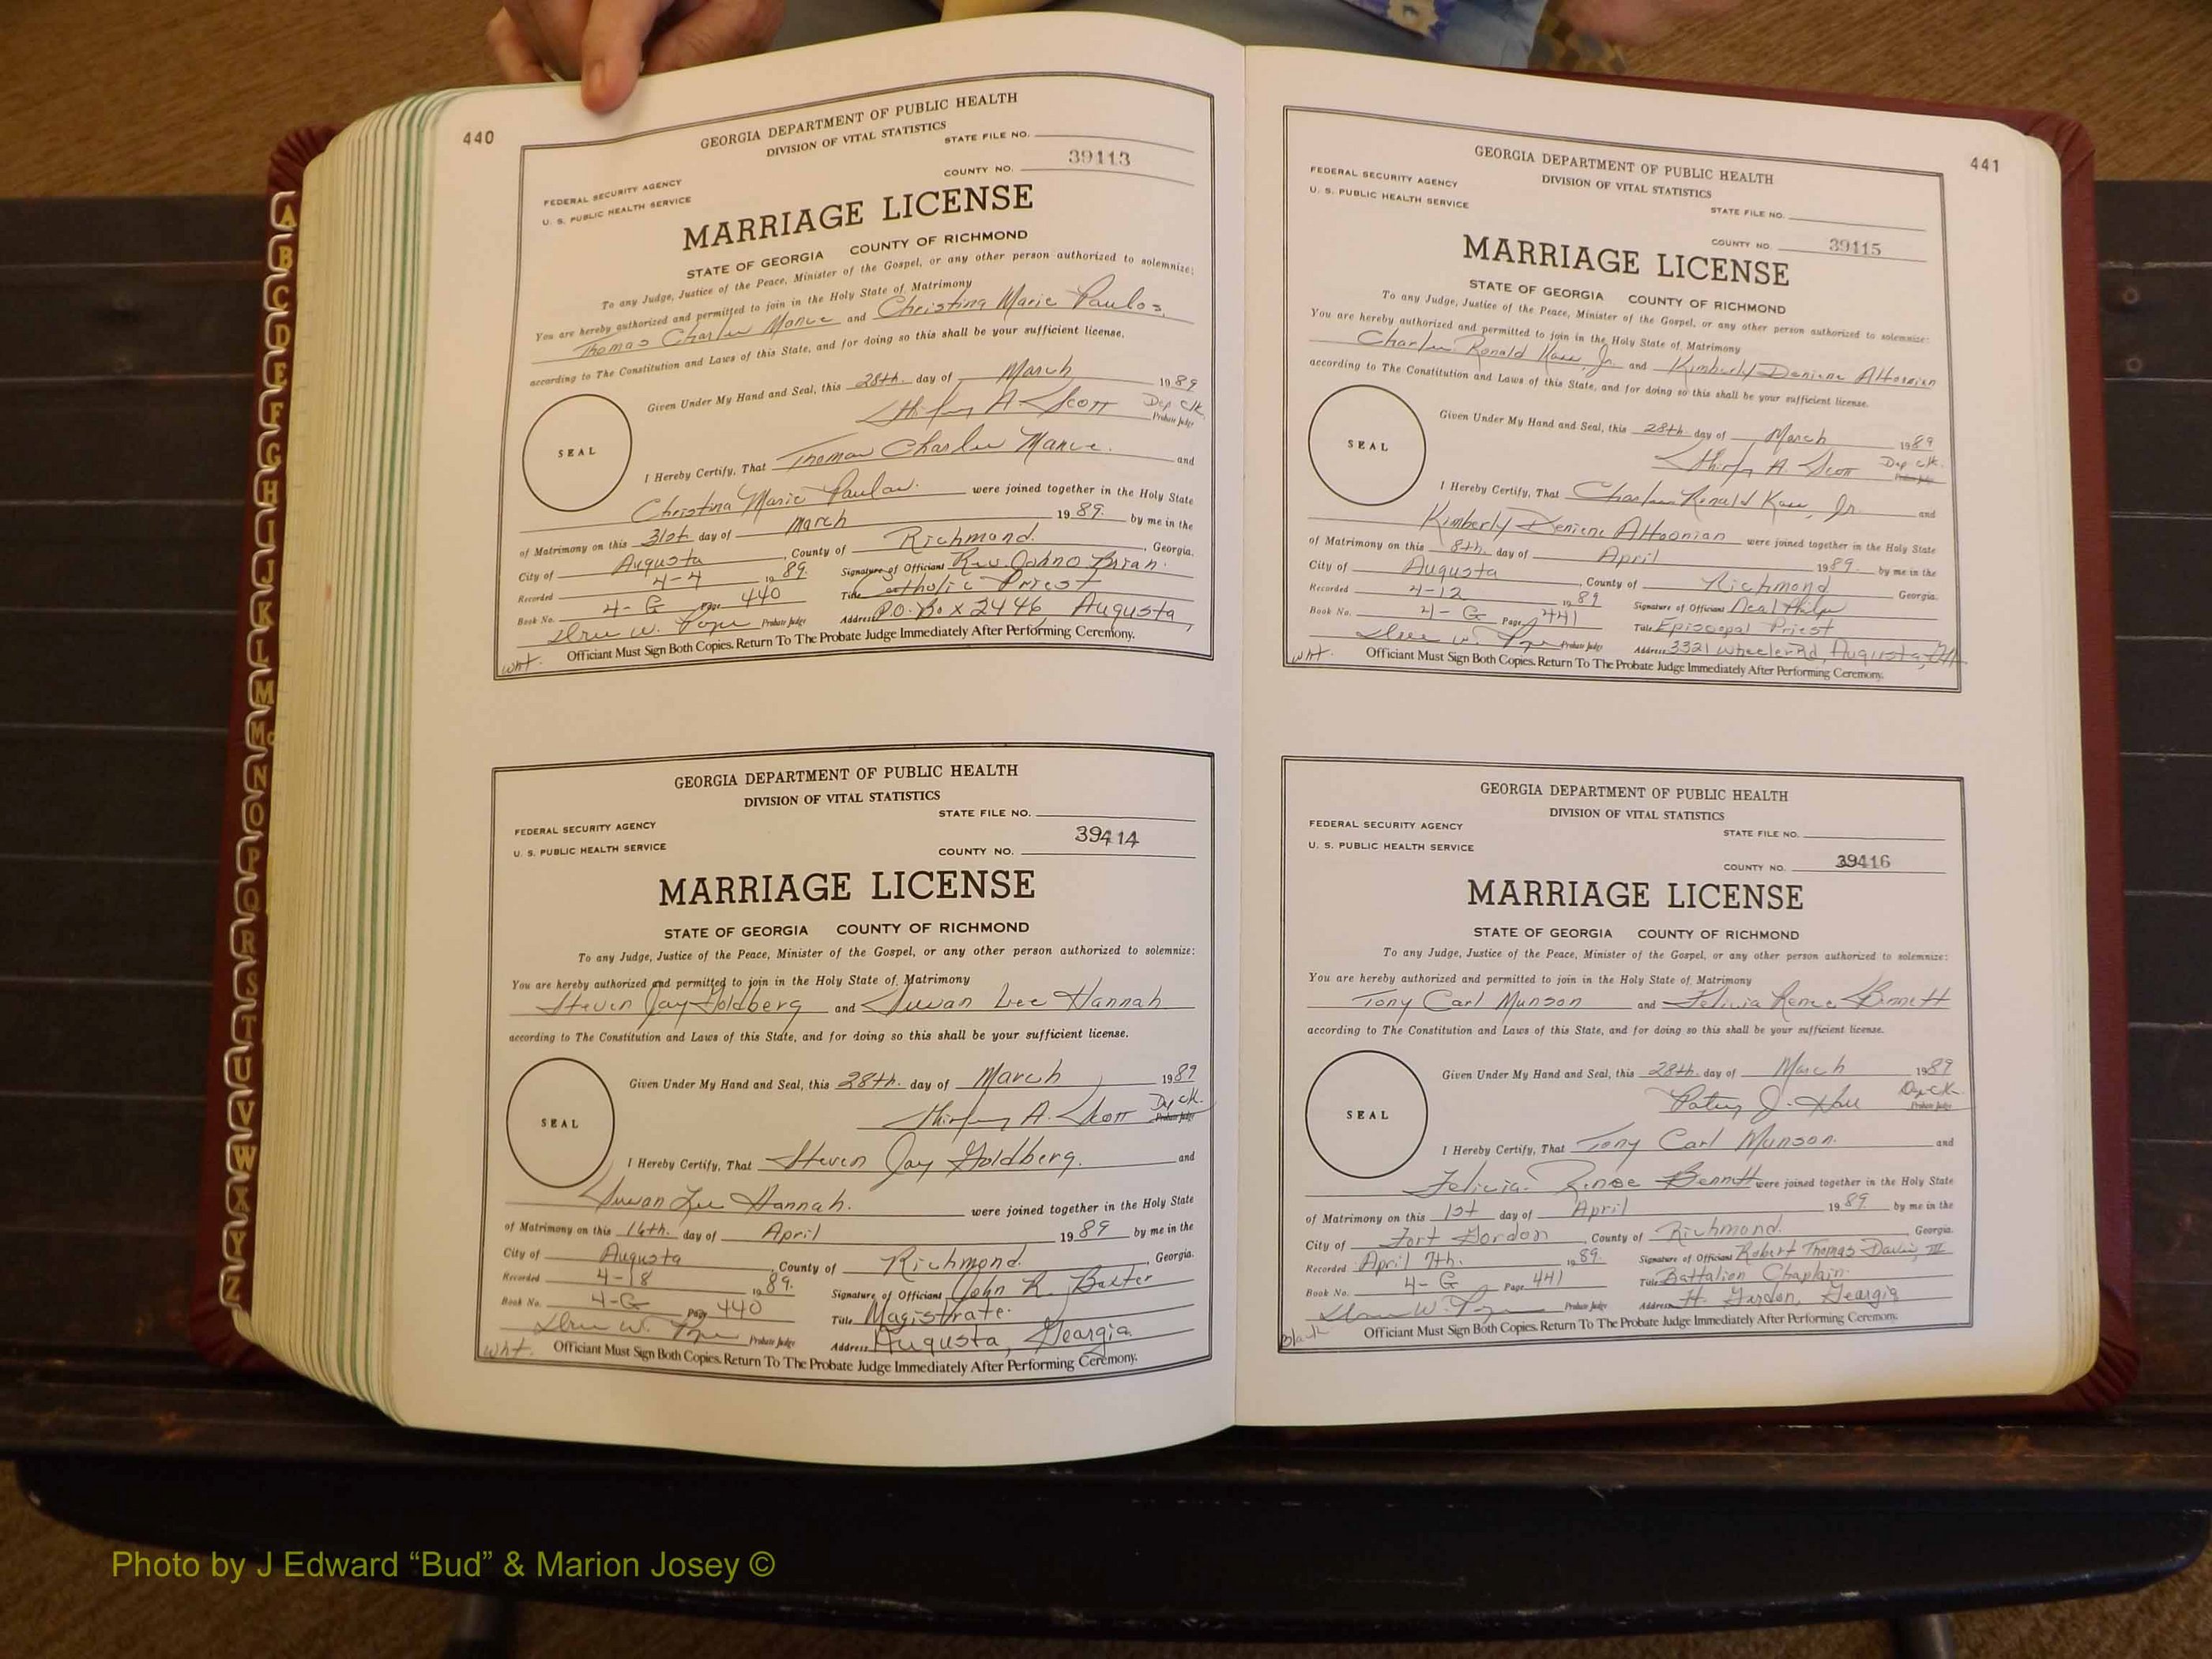 440
GEORGIA DEPARTMENT OF PUBLIC HEALTH
DIVISION OF VITAL STATISTICS
STATE FILE NO.
39113
COUNTY NO.
FEDERAL SECURITY AGENCY
U. S. PUBLIC HEALTH SERVICE
MARRIAGE LICENSE
STATE OF GEORGIA COUNTY OF RICHMOND
To any Judge, Justice of the Peace, Minister of the Gospel, or any other person authorized to solemnize:
You are hereby authorized and permitted to join in the Holy State of Matrimony
Thomas Charles and Christina Marie Paulos
according to The Constitution and Laws of this State, and for doing so this shall be your sufficient license.
Given Under My Hand and Seal, this 28th. day of March 1989
Shirley A. Scott Dep Clk.
Probate Judge
SEAL
I Hereby Certify, That Thomas Charles and
Christina Marie were joined together in the Holy State
of Matrimony on this 31st. day of March 1989. by me in the
City of Augusta, County of Richmond. Georgia.
Recorded 4-4 1989. Signature of Officiant Rev. Brian.
Book No. 4-G Page 440 Title Catholic Priest
W. Pope Probate Judge Address P.O. Box 2446 Augusta,
Officiant Must Sign Both Copies. Return To The Probate Judge Immediately After Performing Ceremony.
wht.
GEORGIA DEPARTMENT OF PUBLIC HEALTH
DIVISION OF VITAL STATISTICS
STATE FILE NO.
39414
FEDERAL SECURITY AGENCY
U. S. PUBLIC HEALTH SERVICE
COUNTY NO.
MARRIAGE LICENSE
STATE OF GEORGIA COUNTY OF RICHMOND
To any Judge, Justice of the Peace, Minister of the Gospel, or any other person authorized to solemnize:
You are hereby authorized and permitted to join in the Holy State of Matrimony
Steven Jay Goldberg and Susan Lee Hannah
according to The Constitution and Laws of this State, and for doing so this shall be your sufficient license.
Given Under My Hand and Seal, this 28th. day of March 1989
Shirley A. Scott Dep Clk.
Probate Judge
SEAL
I Hereby Certify, That Steven Jay Goldberg. and
Susan Lee Hannah. were joined together in the Holy State
of Matrimony on this 16th. day of April 1989 by me in the
City of Augusta, County of Richmond. Georgia.
Recorded 4-18 1989. Signature of Officiant John R. Baxter
Book No. 4-G Page 440 Title Magistrate.
W. Pope Probate Judge Address Augusta, Georgia.
wht. Officiant Must Sign Both Copies. Return To The Probate Judge Immediately After Performing Ceremony.
441
GEORGIA DEPARTMENT OF PUBLIC HEALTH
DIVISION OF VITAL STATISTICS
FEDERAL SECURITY AGENCY
U. S. PUBLIC HEALTH SERVICE
STATE FILE NO.
COUNTY NO. 39115
MARRIAGE LICENSE
STATE OF GEORGIA COUNTY OF RICHMOND
To any Judge, Justice of the Peace, Minister of the Gospel, or any other person authorized to solemnize:
You are hereby authorized and permitted to join in the Holy State of Matrimony
Charles Ronald Jr. and Kimberly Deniene Altoonian
according to The Constitution and Laws of this State, and for doing so this shall be your sufficient license.
Given Under My Hand and Seal, this 28th. day of March 1989
Shirley A. Scott Dep Clk.
Probate Judge
SEAL
I Hereby Certify, That Charles Ronald Jr. and
Kimberly Deniene Altoonian were joined together in the Holy State
of Matrimony on this 8th. day of April 1989. by me in the
City of Augusta, County of Richmond Georgia.
Recorded 4-12 1989 Signature of Officiant Neal
Book No. 4-G Page 441 Title Episcopal Priest
W. Pope Probate Judge Address 3321 Wheeler Rd, Augusta, GA
wht. Officiant Must Sign Both Copies. Return To The Probate Judge Immediately After Performing Ceremony.
GEORGIA DEPARTMENT OF PUBLIC HEALTH
DIVISION OF VITAL STATISTICS
FEDERAL SECURITY AGENCY
STATE FILE NO.
U. S. PUBLIC HEALTH SERVICE
COUNTY NO. 39416
MARRIAGE LICENSE
STATE OF GEORGIA COUNTY OF RICHMOND
To any Judge, Justice of the Peace, Minister of the Gospel, or any other person authorized to solemnize:
You are hereby authorized and permitted to join in the Holy State of Matrimony
Tony Carl Munson and Felicia Renee Bennett
according to The Constitution and Laws of this State, and for doing so this shall be your sufficient license.
Given Under My Hand and Seal, this 28th. day of March 1989
J. Dep Clk.
Probate Judge
SEAL
I Hereby Certify, That Tony Carl Munson. and
Felicia Renee Bennett were joined together in the Holy State
of Matrimony on this 1st day of April 1989. by me in the
City of Fort Gordon, County of Richmond. Georgia.
Recorded April 7th. 1989. Signature of Officiant Robert Thomas III
Book No. 4-G Page 441 Title Battalion Chaplain
W. Pope Probate Judge Address Ft. Gordon, Georgia
Black Officiant Must Sign Both Copies. Return To The Probate Judge Immediately After Performing Ceremony.
A
B
C
D
E
F
G
H
I
J
K
L
M
Mc
N
O
P
Q
R
S
T
U
V
W
X
Y
Z
Photo by J Edward “Bud” & Marion Josey ©